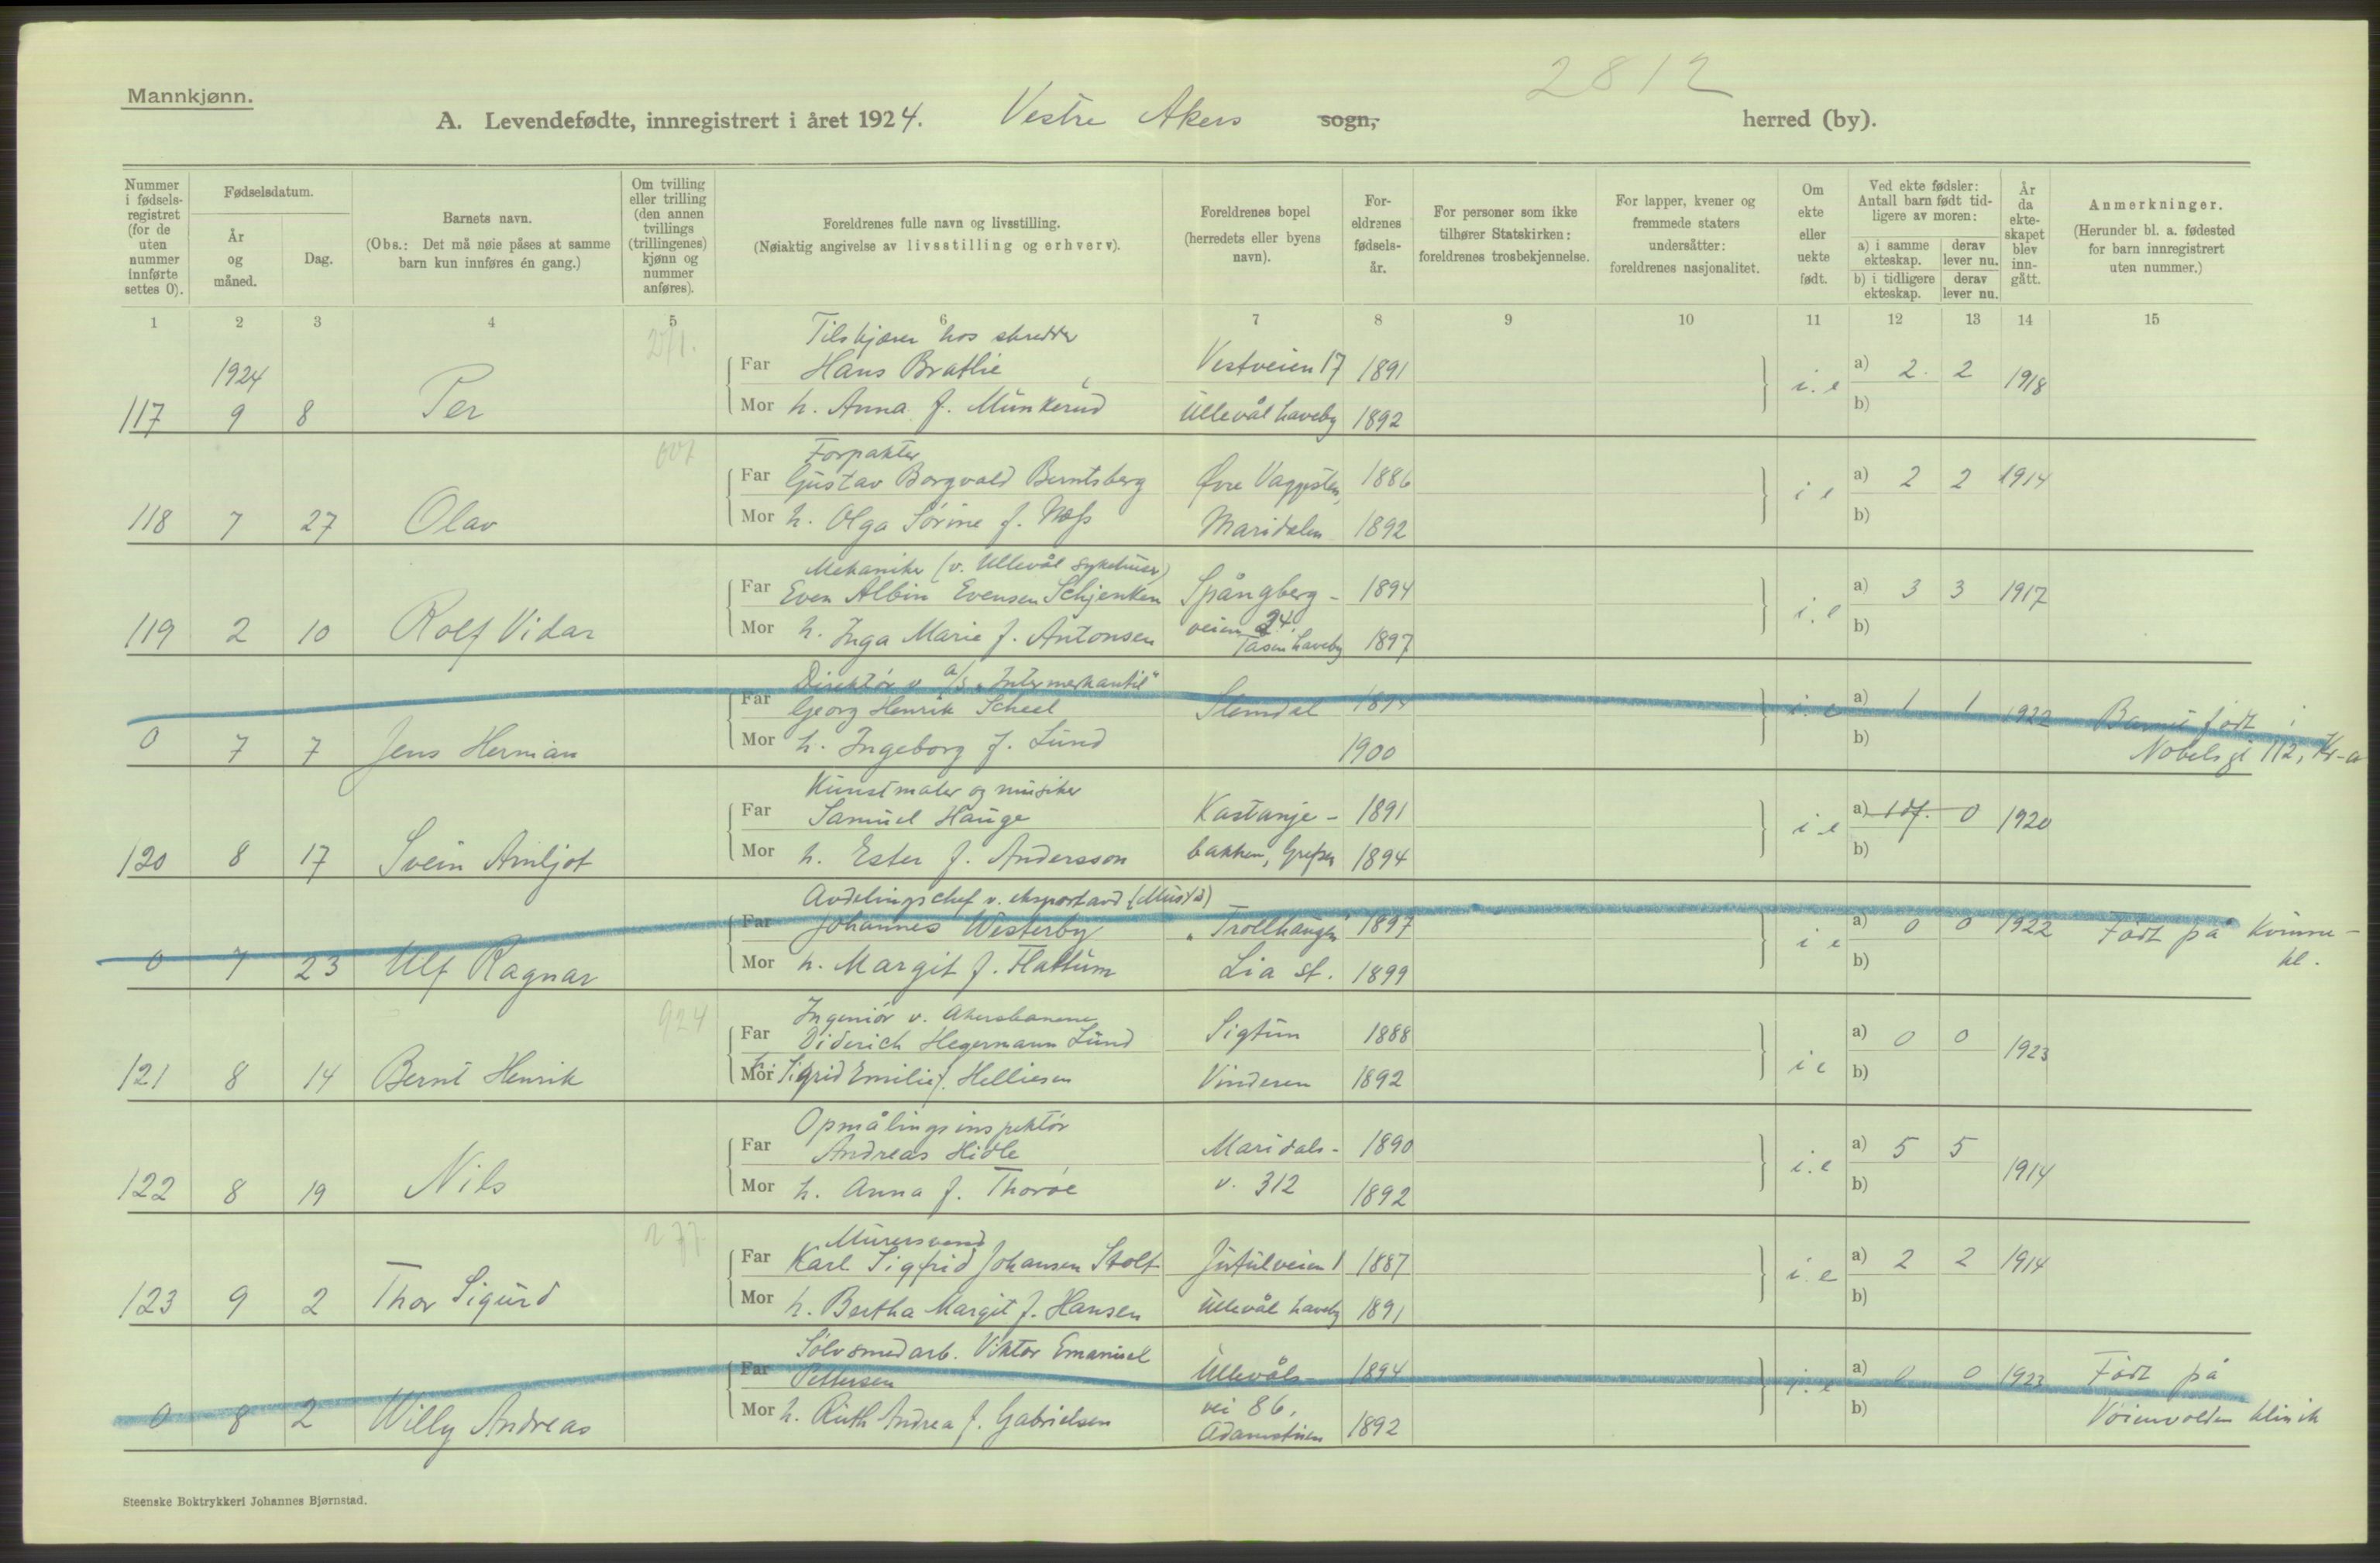 2812
Mannkjønn.
A. Levendefødte, innregistrert i året 1924. Vestre Akers sogn, herred (by).
Nummer i fødsels-registret (for de uten nummer innførte settes 0).
Fødselsdatum.
År og måned.
Dag.
Barnets navn.
(Obs.: Det må nøie påses at samme barn kun innføres én gang.)
Om tvilling eller trilling (den annen tvillings (trillingenes) kjønn og nummer anføres).
Foreldrenes fulle navn og livsstilling.
(Nøiaktig angivelse av livsstilling og erhverv).
Foreldrenes bopel (herredets eller byens navn).
For-eldrenes fødsels-år.
For personer som ikke tilhører Statskirken: foreldrenes trosbekjennelse.
For lapper, kvener og fremmede staters undersåtter: foreldrenes nasjonalitet.
Om ekte eller uekte født.
Ved ekte fødsler: Antall barn født tid-ligere av moren:
a) i samme ekteskap. derav lever nu.
b) i tidligere ekteskap. derav lever nu.
År da ekte-skapet blev inn-gått.
Anmerkninger.
(Herunder bl. a. fødested for barn innregistrert uten nummer.)
1 2 3 4 5 6 7 8 9 10 11 12 13 14 15
Tilskjærer hos skredder
1924 Far Hans Brathe Vestveien 17 1891 i.e a) 2. 2 1918
117 9 8 Per Mor h. Anna f. Munkerud Ullevål haveby 1892 b)
601
Forpakter
Far Gustav Borgvald Berntsberg Øvre Vaggsten, 1886 i e a) 2 2 1914
118 7 27 Olav Mor h. Olga Sørine f. Næss Maridalen 1892 b)
Mekaniker (v. Ullevål sykehuser)
Far Even Albin Evensen Schjenken Spångberg- 1894 i.e a) 3 3 1917
119 2 10 Rolf Vidar Mor h. Inga Marie f. Antonsen veien 24. Tåsen haveby 1897 b)
Direktør v. a/s "Intermerkantil"
Far Georg Henrik Scheel Slemdal 1894 i.e a) 1 1 1922 Barnet født i
0 7 7 Jens Herman Mor h. Ingeborg f. Lund 1900 b) Nobels gt 112, Kr-a
Kunstmaler og musiker
Far Samuel Hauge Kastanje- 1891 i e a) 1 df. 0 1920
120 8 17 Svein Arnljot Mor h. Ester f. Andersson bakken, Grefsen 1894 b)
Avdelingschef v. eksportavd (Mustad)
Far Johannes Westerby "Trollhaugen" 1897 i e a) 0 0 1922 Født på Kvinne-
0 7 23 Ulf Ragnar Mor h. Margit f. Flattum Lia st. 1899 b) kl.
924
Ingeniør v. Akersbanene
Far Diderich Hegermann Lund Sigtun 1888 i e a) 0 0 1923
121 8 14 Bernt Henrik Mor h. Sigrid Emilie f. Helliesen Vinderen 1892 b)
Opmålingsinspektør
Far Andreas Hidle Maridals- 1890 i.e a) 5 5 1914
122 8 19 Nils Mor h. Anna f. Thorøe v. 312 1892 b)
277.
Murersvend
Far Karl Sigfrid Johansen Stolt Jutulveien 1 1887 i.e a) 2 2 1914
123 9 2 Thor Sigurd Mor h. Bertha Margit f. Hansen Ullevål haveby 1891 b)
Sølvsmedarb. Viktor Emanuel
Far Pettersen Ullevåls- 1894 i.e a) 0 0 1923 Født på
0 8 2 Willy Andreas Mor h. Ruth Andrea f. Gabrielsen vei 86, Adamstuen 1892 b) Voienvolden klinik
Steenske Boktrykkeri Johannes Bjørnstad.